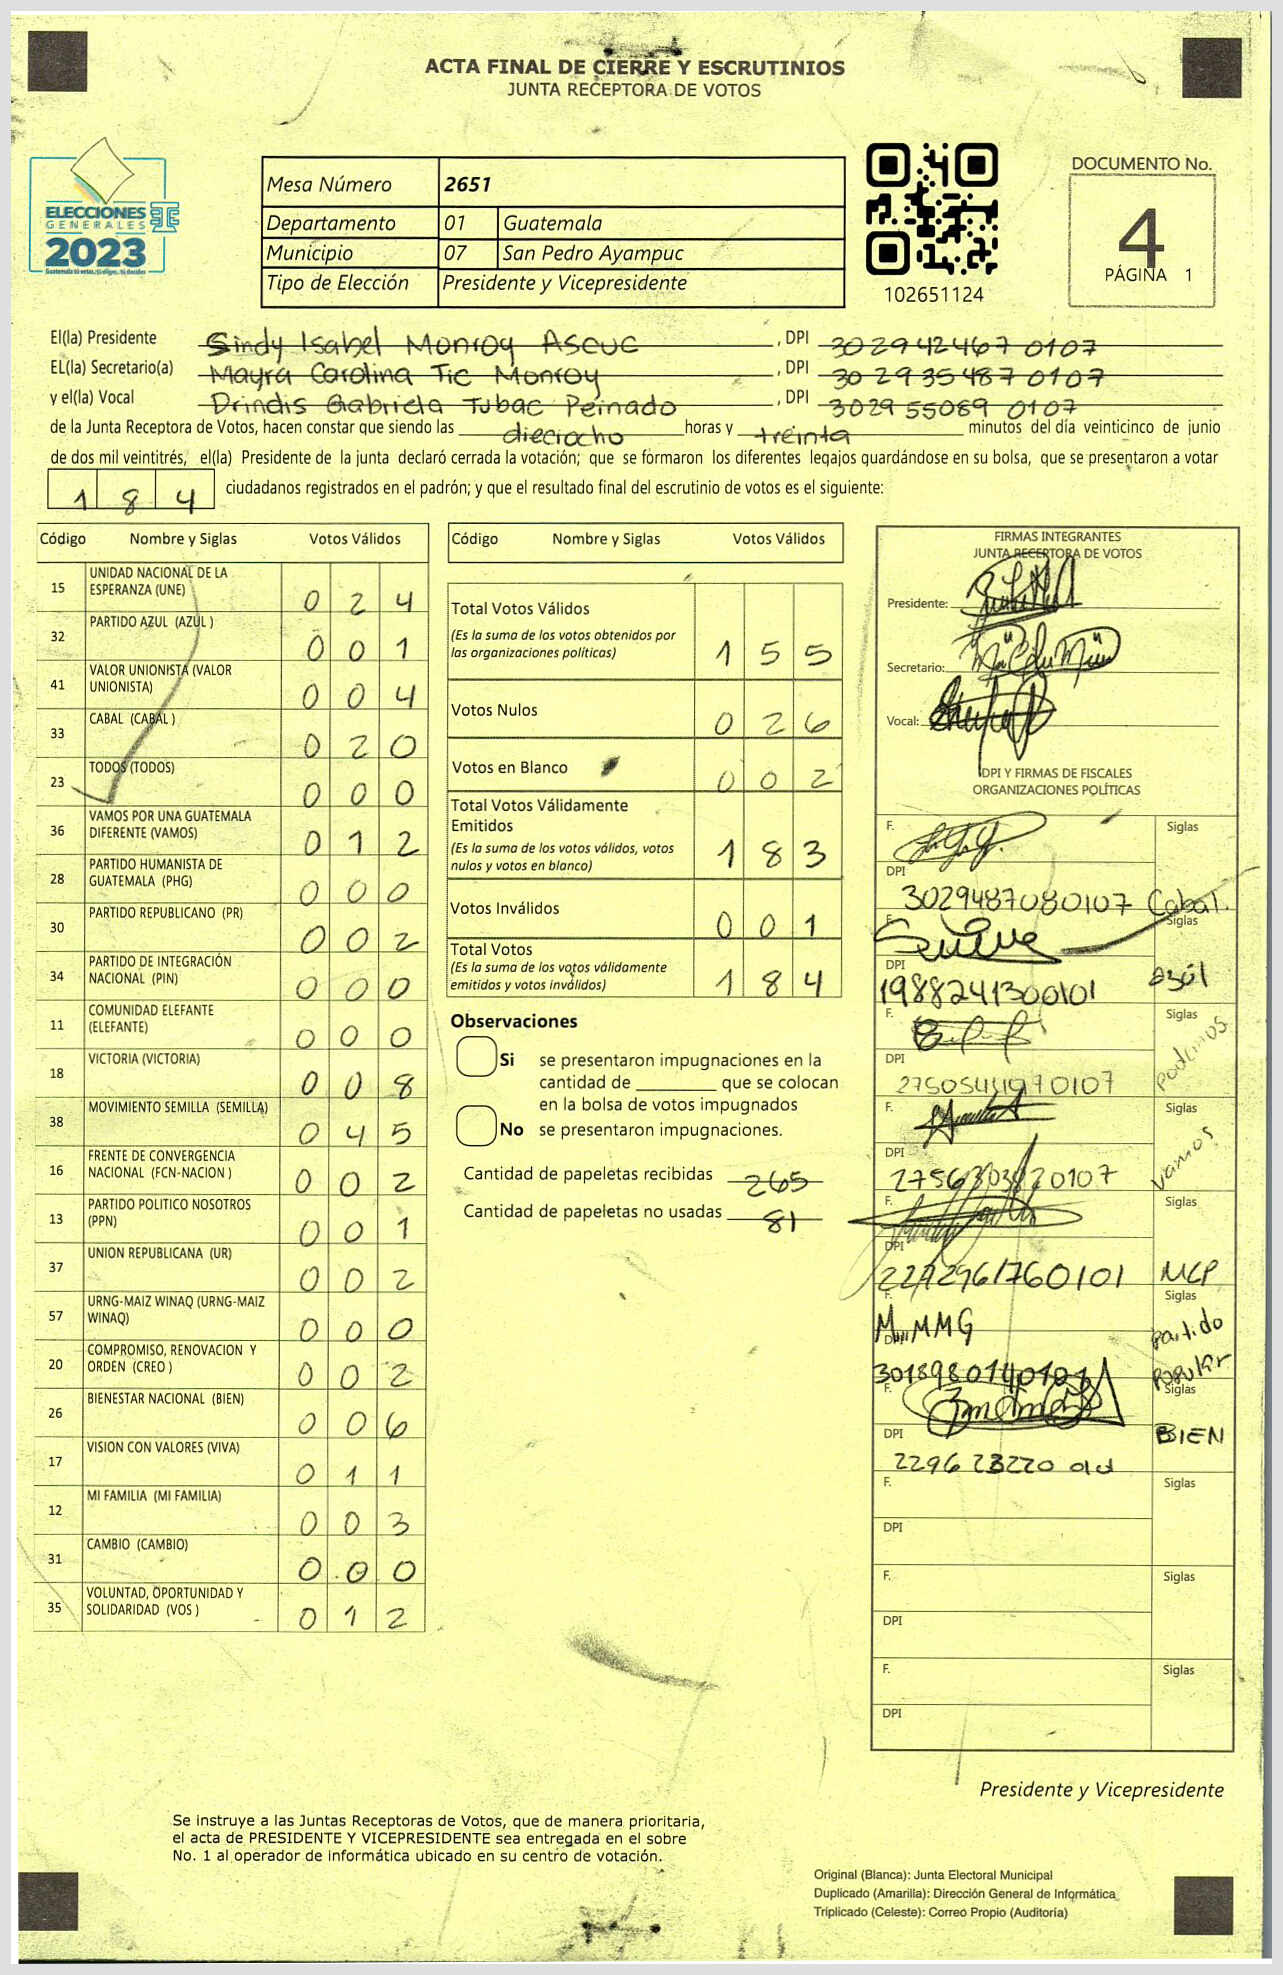 ACTA FINAL DE CIERRE Y ESCRUTINIOS
JUNTA RECEPTORA DE VOTOS
ELECCIONES
GENERALES
2023
Mesa Número 2651
Departamento 01 Guatemala
Municipio 07 San Pedro Ayampuc
Tipo de Elección Presidente y Vicepresidente
102651124
DOCUMENTO No.
4
PÁGINA 1
El(la) Presidente Sindy Isabel Monroy Ascuc , DPI 302942467 0107
EL(la) Secretario(a) Mayra Carolina Tic Monroy , DPI 30 2935487 0107
y el(la) Vocal Drindis Gabriela Tubac Peinado , DPI 3029 55089 0107
de la Junta Receptora de Votos, hacen constar que siendo las dieciocho horas y treinta minutos del día veinticinco de junio
de dos mil veintitrés, el(la) Presidente de la junta declaró cerrada la votación; que se formaron los diferentes legajos guardándose en su bolsa, que se presentaron a votar
1 8 4 ciudadanos registrados en el padrón; y que el resultado final del escrutinio de votos es el siguiente:
Código Nombre y Siglas Votos Válidos
15 UNIDAD NACIONAL DE LA ESPERANZA (UNE) 0 2 4
32 PARTIDO AZUL (AZUL ) 0 0 1
41 VALOR UNIONISTA (VALOR UNIONISTA) 0 0 4
33 CABAL (CABAL ) 0 2 0
23 TODOS (TODOS) 0 0 0
36 VAMOS POR UNA GUATEMALA DIFERENTE (VAMOS) 0 1 2
28 PARTIDO HUMANISTA DE GUATEMALA (PHG) 0 0 0
30 PARTIDO REPUBLICANO (PR) 0 0 2
34 PARTIDO DE INTEGRACIÓN NACIONAL (PIN) 0 0 0
11 COMUNIDAD ELEFANTE (ELEFANTE) 0 0 0
18 VICTORIA (VICTORIA) 0 0 8
38 MOVIMIENTO SEMILLA (SEMILLA) 0 4 5
16 FRENTE DE CONVERGENCIA NACIONAL (FCN-NACION ) 0 0 2
13 PARTIDO POLITICO NOSOTROS (PPN) 0 0 1
37 UNION REPUBLICANA (UR) 0 0 2
57 URNG-MAIZ WINAQ (URNG-MAIZ WINAQ) 0 0 0
20 COMPROMISO, RENOVACION Y ORDEN (CREO ) 0 0 2
26 BIENESTAR NACIONAL (BIEN) 0 0 6
17 VISION CON VALORES (VIVA) 0 1 1
12 MI FAMILIA (MI FAMILIA) 0 0 3
31 CAMBIO (CAMBIO) 0 0 0
35 VOLUNTAD, OPORTUNIDAD Y SOLIDARIDAD (VOS ) 0 1 2
Código Nombre y Siglas Votos Válidos
Total Votos Válidos
(Es la suma de los votos obtenidos por las organizaciones políticas) 1 5 5
Votos Nulos 0 2 6
Votos en Blanco 0 0 2
Total Votos Válidamente Emitidos
(Es la suma de los votos válidos, votos nulos y votos en blanco) 1 8 3
Votos Inválidos 0 0 1
Total Votos
(Es la suma de los votos válidamente emitidos y votos inválidos) 1 8 4
Observaciones
Si se presentaron impugnaciones en la
cantidad de ________ que se colocan
en la bolsa de votos impugnados
No se presentaron impugnaciones.
Cantidad de papeletas recibidas 265
Cantidad de papeletas no usadas 81
FIRMAS INTEGRANTES
JUNTA RECEPTORA DE VOTOS
Presidente:
Secretario:
Vocal:
DPI Y FIRMAS DE FISCALES
ORGANIZACIONES POLÍTICAS
F. Siglas
DPI
3029487080107 Cabal.
F. Siglas
DPI
1988241300101 azúl
F. Siglas
DPI Podemos
F. Siglas
DPI
Vamos
F. Siglas
DPI
MLP
F. Siglas
M. MMG partido
DPI popular
F. Siglas
DPI BIEN
F. Siglas
DPI
F. Siglas
DPI
F. Siglas
DPI
Presidente y Vicepresidente
Se instruye a las Juntas Receptoras de Votos, que de manera prioritaria,
el acta de PRESIDENTE Y VICEPRESIDENTE sea entregada en el sobre
No. 1 al operador de informática ubicado en su centro de votación.
Original (Blanca): Junta Electoral Municipal
Duplicado (Amarilla): Dirección General de Informática
Triplicado (Celeste): Correo Propio (Auditoría)